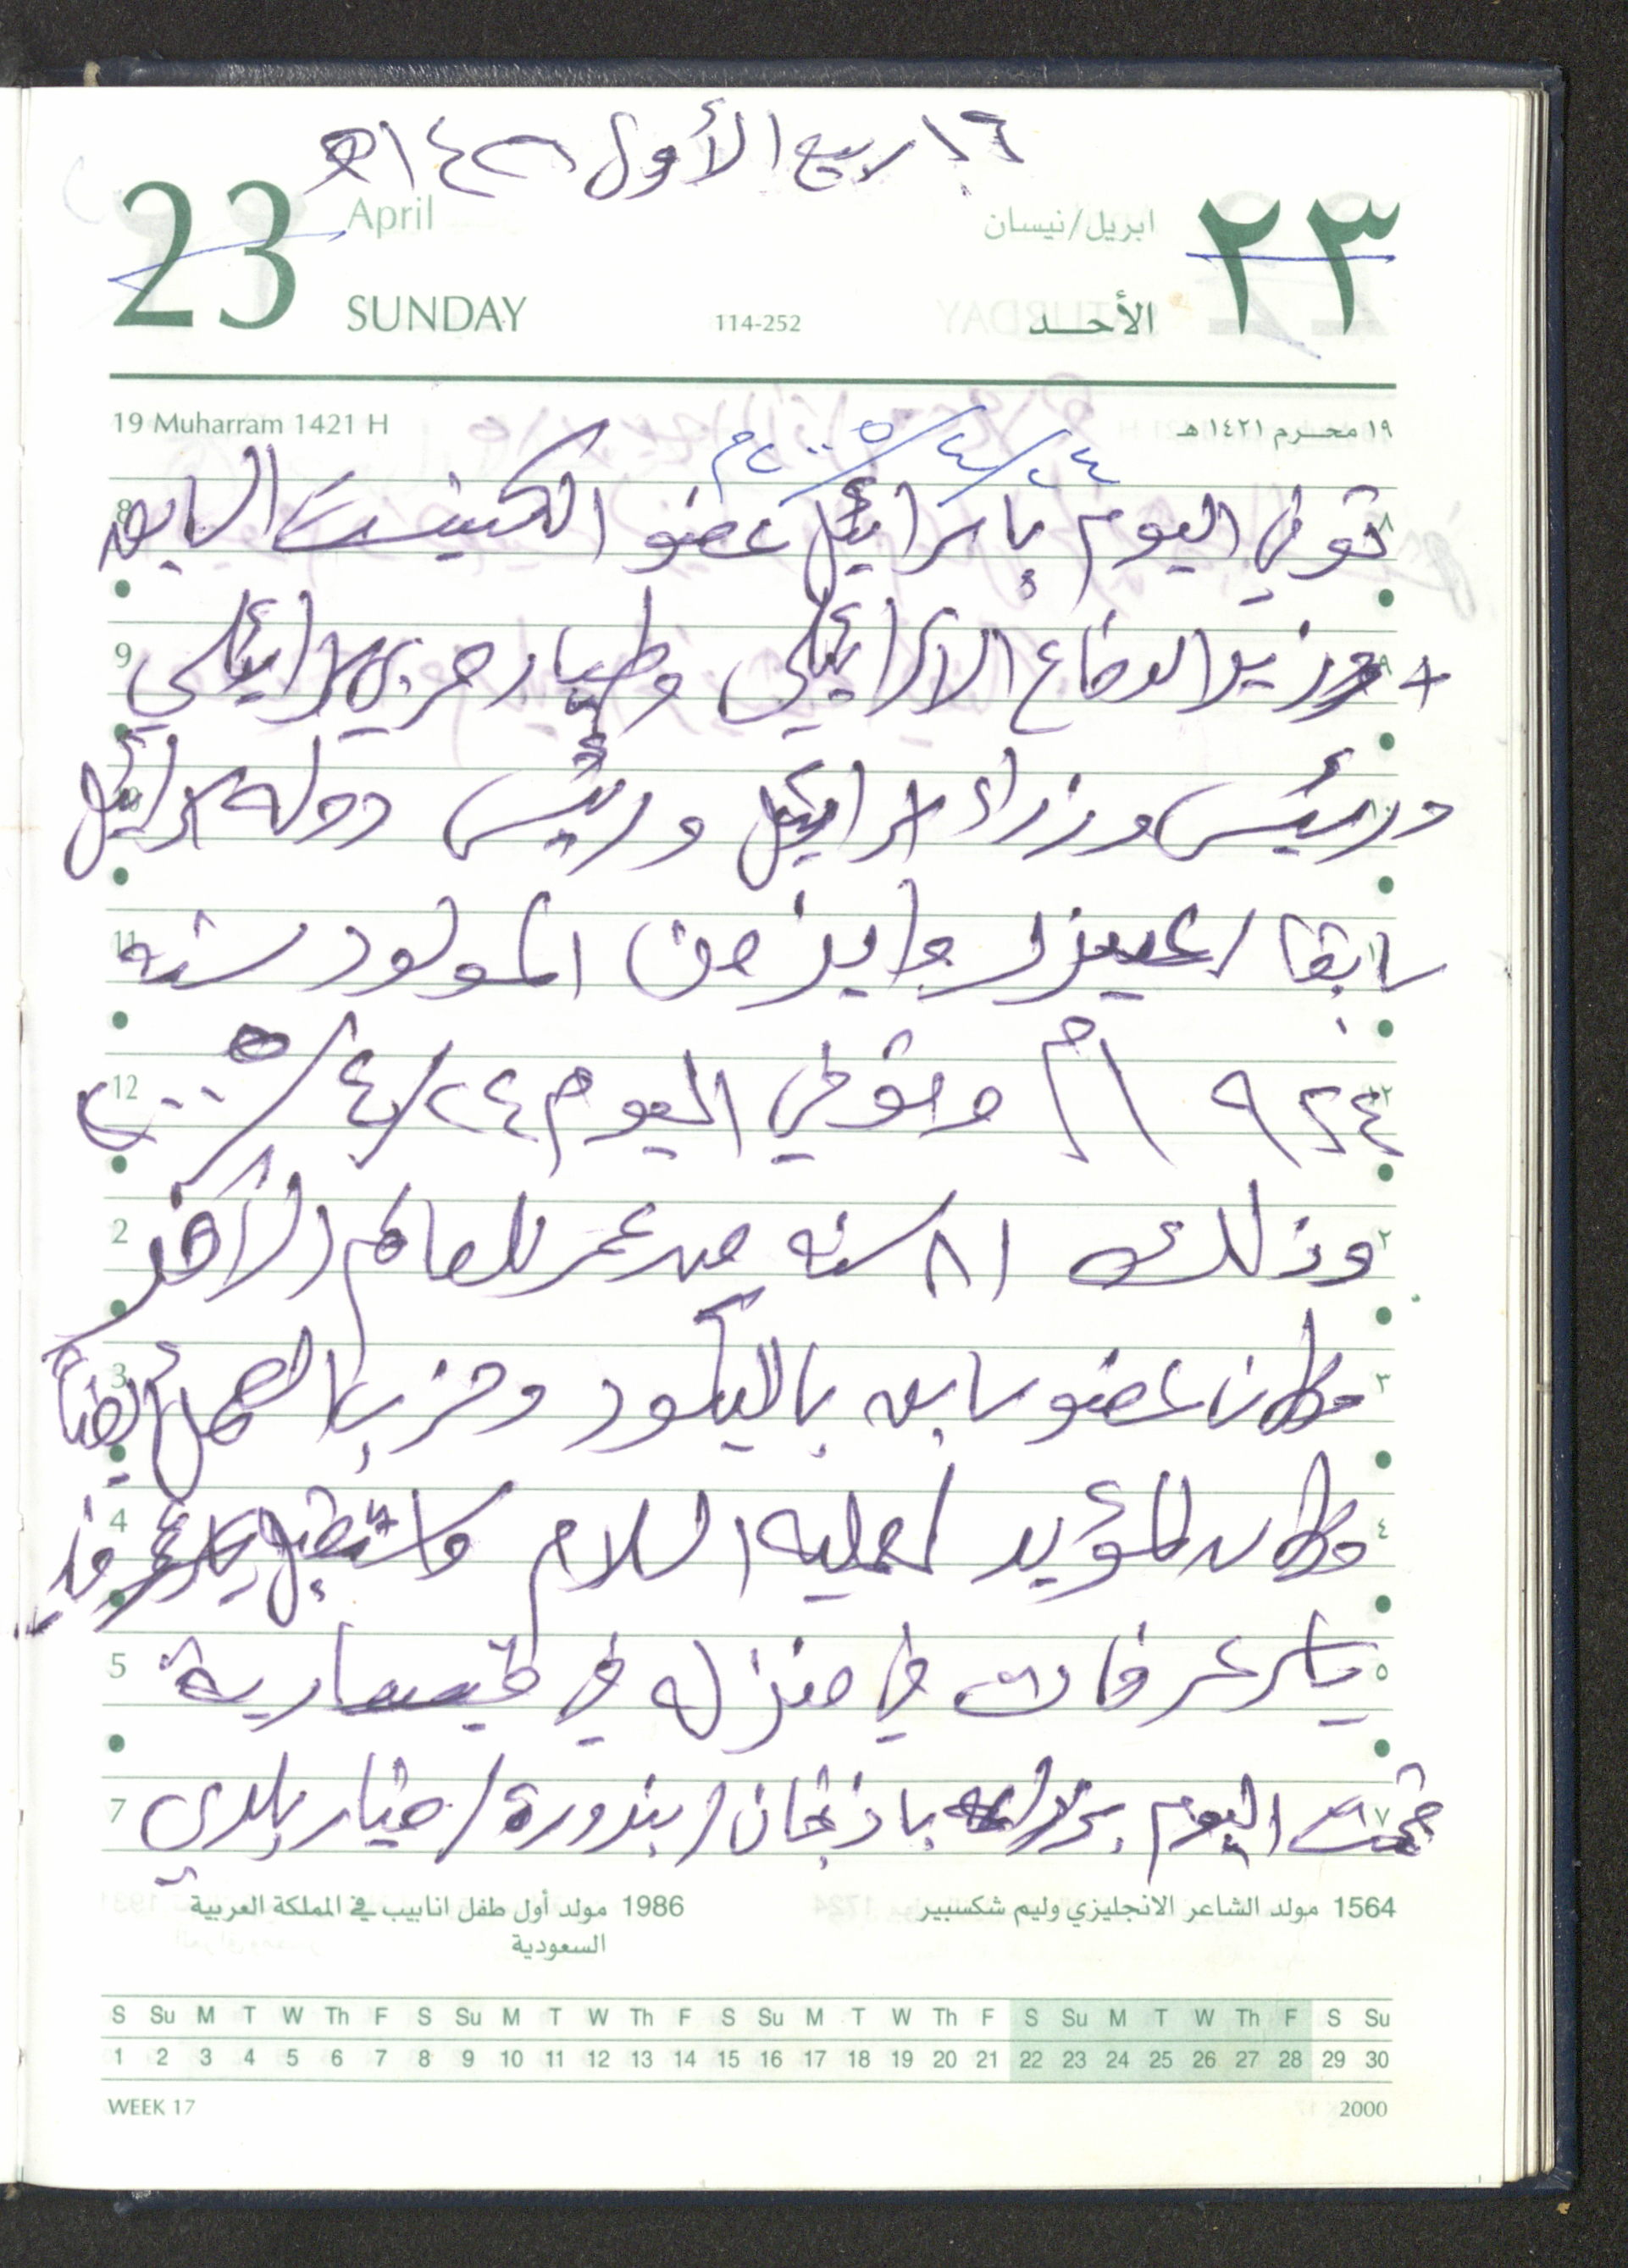 ١٦ ربيع الأول ١٤٢٦هـ
23 April ابريل/نيسان ٢٣
SUNDAY 114-252 الأحـــد
19 Muharram 1421 H ١٩ محـــرم ١٤٢١ هـ
٢٤/٤/٢٠٠٥م
توفي اليوم بإسرائيل عضو الكنيست السابق
+ وزير الدفاع الاسرائيلي وطيار حربي اسرائيلي
ورئيس وزراء اسرائيل ورئيس دولة اسرائيل
سابقا / عيزرا وايزمن المولود سنه
١٩٢٤م وتوفي اليوم ٢٤/٤/٢٠٠٥
وذلك ٨١ سنه من عمر للعالم الآخر
وكان عضو سابق بالليكود وحزب العمل أيضاً
وكان المؤيد لعمليه السلام واستقبل
ياسر عرفات في منزله في قيسارية
تمت اليوم بزراعة باذنجان / بندورة / خيار بلدي
8 ٨
9 ٩
11
12 ١٢
2 ٢
3 ٣
4 ٤
5 ٥
7 ٧
1564 مولد الشاعر الانجليزي وليم شكسبير
1986 مولد أول طفل انابيب في المملكة العربية
السعودية
S Su M T W Th F S Su M T W Th F S Su M T W Th F S Su M T W Th F S Su
1 2 3 4 5 6 7 8 9 10 11 12 13 14 15 16 17 18 19 20 21 22 23 24 25 26 27 28 29 30
WEEK 17 2000